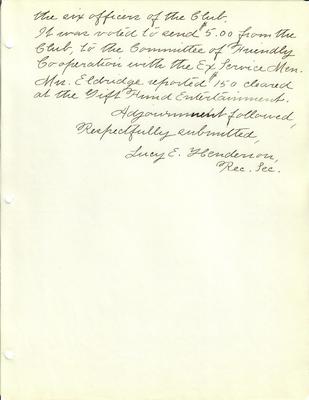 the six officers of the Club.
It was voted to send $5.00 from the
Club, to the Committee of Friendly
Co-operation with the Ex Service Men.
Mrs. Eldridge reported $150 cleared
at the Gift Fund Entertainment.
Adjournment followed,
Respectfully submitted,
Lucy E. Henderson,
Rec. Sec.